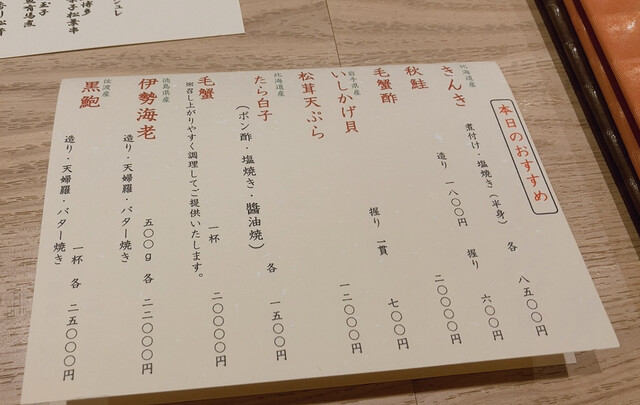 本日のおすすめ
北海道産
きんき 煮付け・塩焼き(半身) 各 八五〇〇円
秋鮭 造り 一八〇〇円 握り 六〇〇円
毛蟹酢 二〇〇〇〇円
岩手県産
いしかげ貝 握り 一貫 七〇〇円
松茸天ぷら 一二〇〇〇円
北海道産
たら白子 (ポン酢・塩焼き・醬油焼) 各 一五〇〇円
毛蟹 一杯 二〇〇〇〇円
※召し上がりやすく調理してご提供いたします。
徳島県産
伊勢海老 造り・天婦羅・バター焼き 五〇〇g 各 二二〇〇〇円
佐渡産
黒鮑 造り・天婦羅・バター焼き 一杯 各 二五〇〇〇円